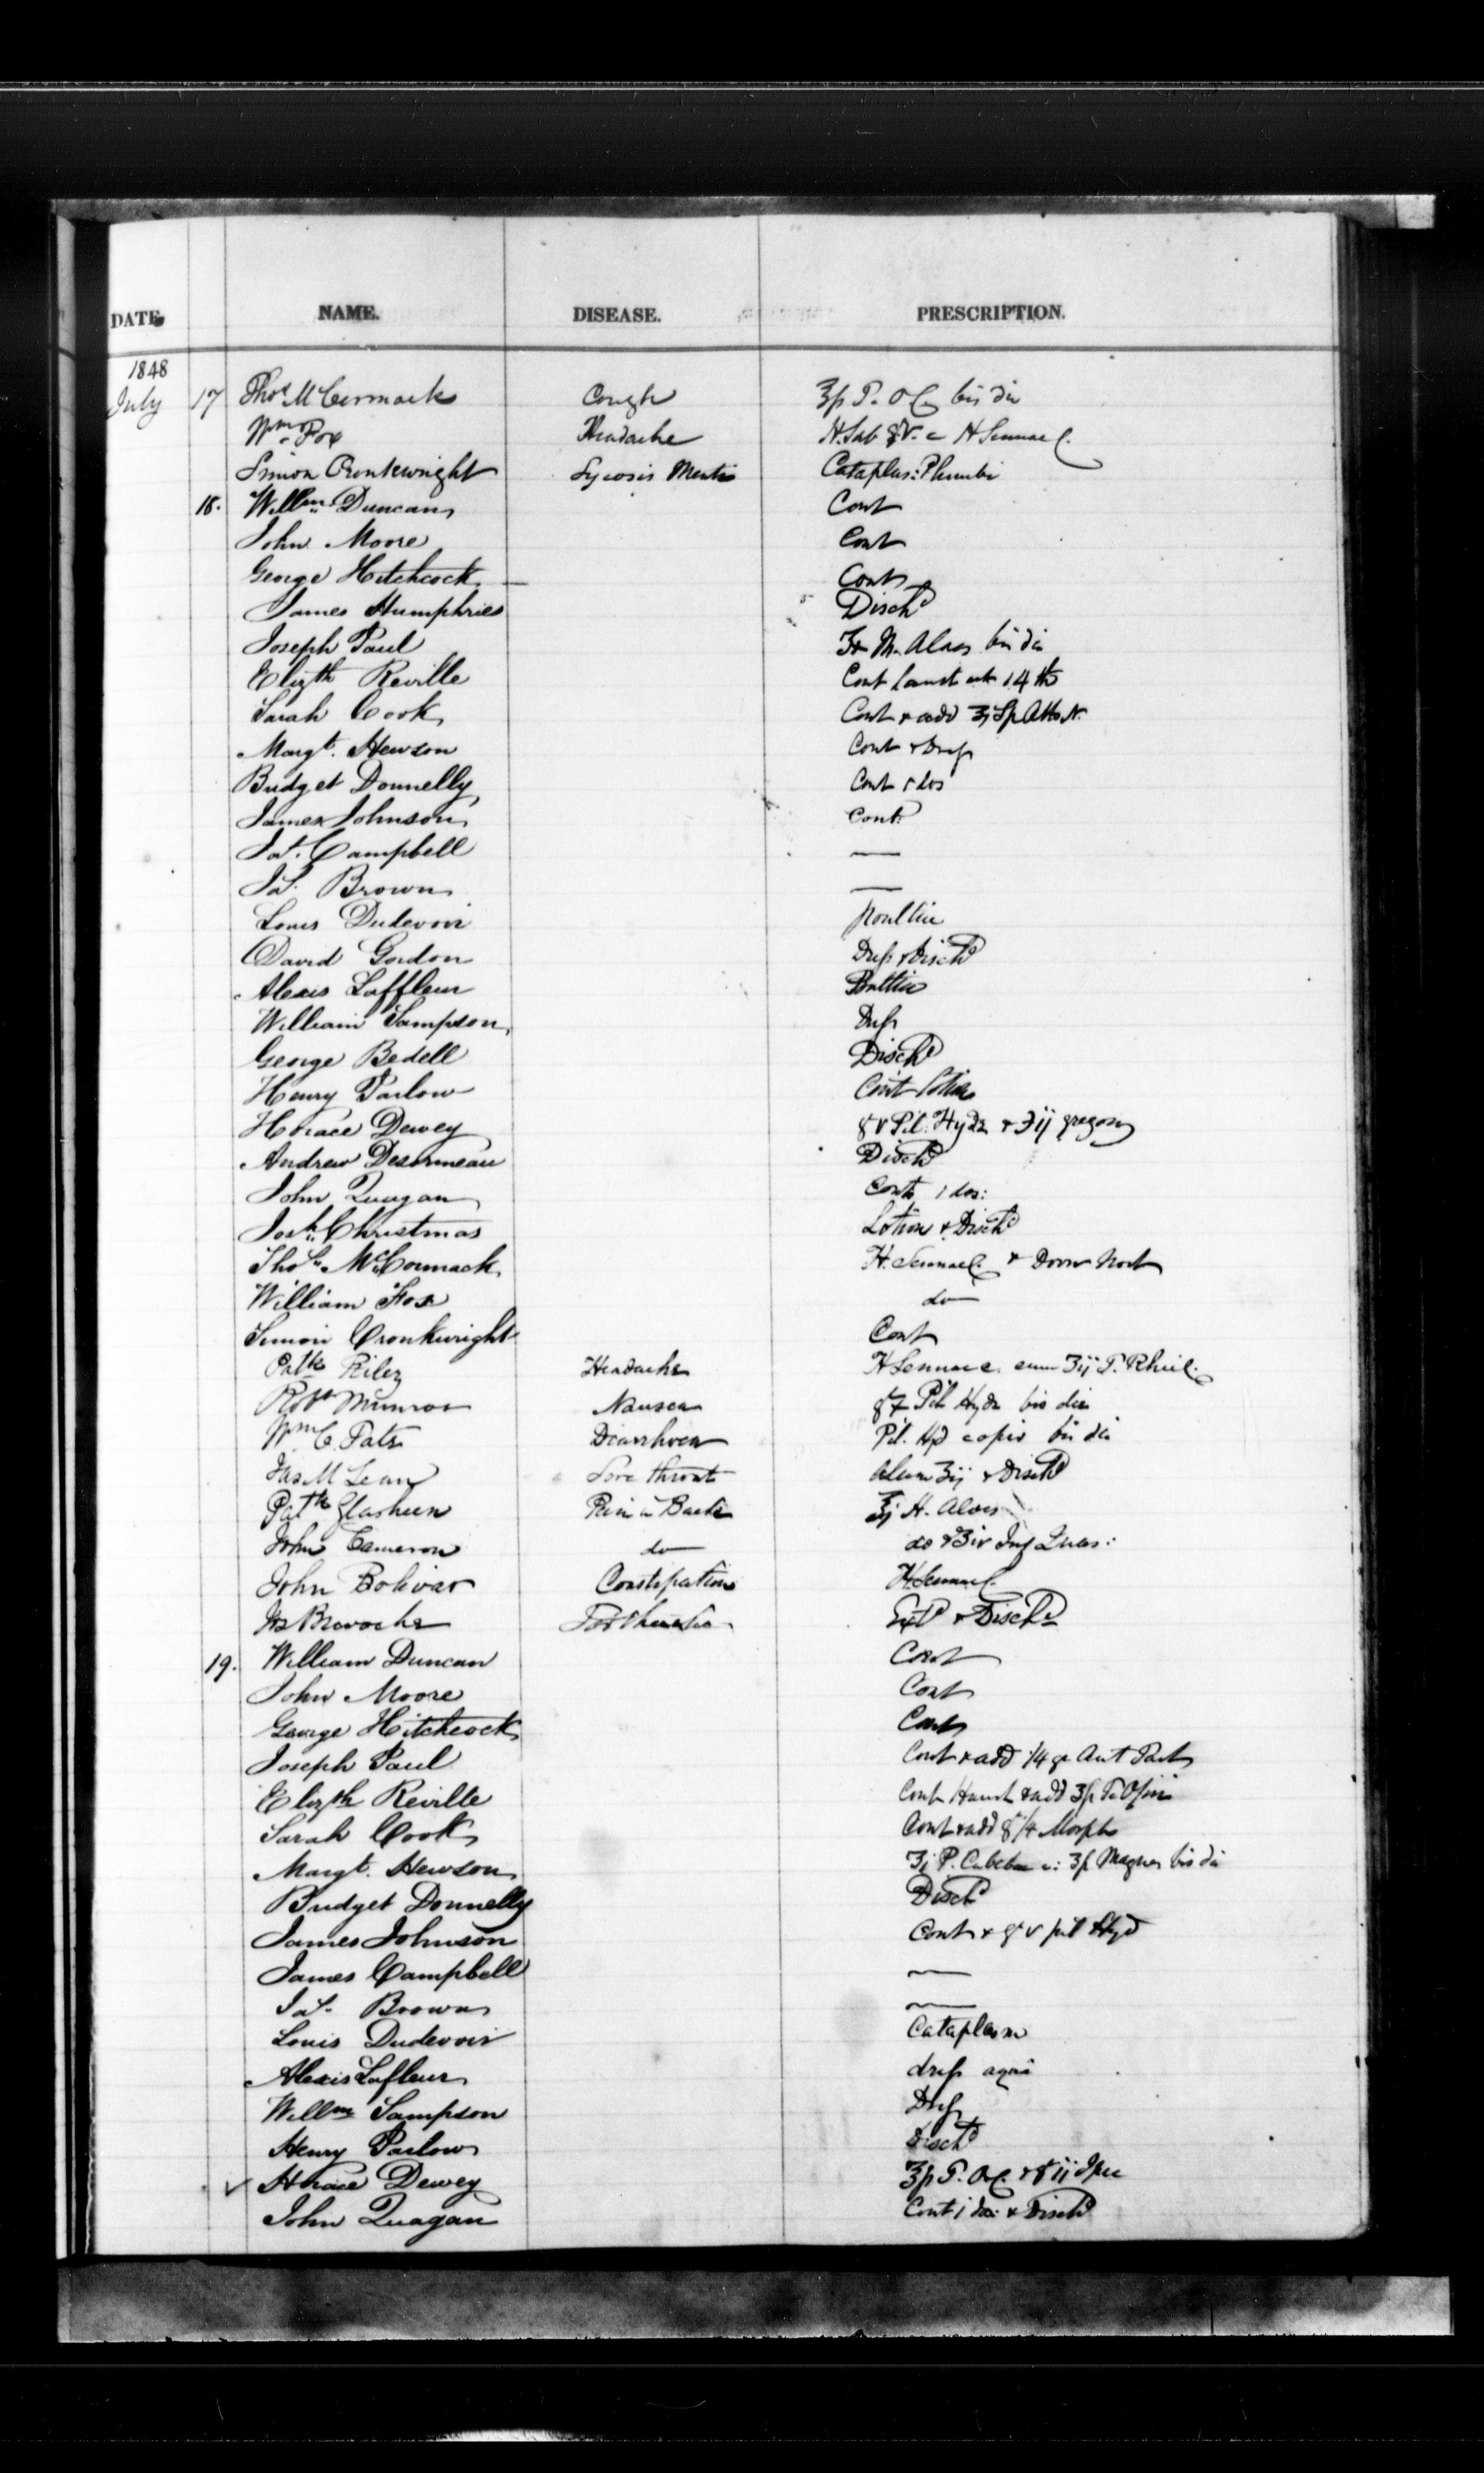 DATE. NAME. DISEASE. PRESCRIPTION.
1848
July 17 Thos McCormack Cough bis die
Wm Fox Headache H. Sennae C.
Simon Cronkwright Sycosis Menti Cataplas: Plumbi
18. Willm Duncan Cont
John Moore Cont
George Hitchcock — Cont
James Humphries Dischd
Joseph Paul M. Aloes bis die
Elizth Reville Cont haust 14th
Sarah Cook Cont & add ʒj Sp
Margt. Hewson Cont & Dress
Bridget Donnelly Cont 1 dos
James Johnson Cont.
Jas. Campbell —
Jas. Brown —
Louis Dudevoir Poultice
David Gordon Dress & Dischd
Alexis Laffleur Poultice
William Sampson Dress
George Bedell Dischd
Henry Parlow Cont Lotion
Horace Dewey gr v Pil. Hydr & ʒij gregory
Andrew Desormeau Dischd
John Quagan Cont 1 dos:
Josh. Christmas Lotion & Dischd
Thos. McCormack H. Sennae C. & Dover Noct
William Fox do
Simon Cronkwright Cont
Patk Riley Headache H Sennae c. cum ʒij T. Rhei C.
Robt Munroe Nausea Pil Hydr bis die
Wm C. Pats Diarrhoea Pil. Hyd c opio bis die
Jas McLean Sore throat Alum ʒij & Dischd
Patk Glasheen Pain in Back ʒj H. Aloes
John Cameron do do & ʒiv Inf Quas:
John Bolivar Constipation H. Sennae C.
Jas Brevoche Extd & Dischd
19. William Duncan Cont
John Moore Cont
George Hitchcock Cont
Joseph Paul Cont & add 1/4 gr Ant Tart
Elizth Reville Cont Haust & add T. Opii
Sarah Cook Cont & add gr 1/4 Morph
Margt. Hewson ʒj P. Cubebae c: Magnes bis die
Bridget Donnelly Dischd
James Johnson Cont & gr v pil Hyd
James Campbell —
Jas. Brown —
Louis Dudevoir Cataplasm
Alexis Lafleur dress again
Willm Sampson Dress
Henry Parlow Dischd
✓ Horace Dewey & gr ij Ipec
John Quagan Cont 1 dos: & Dischd